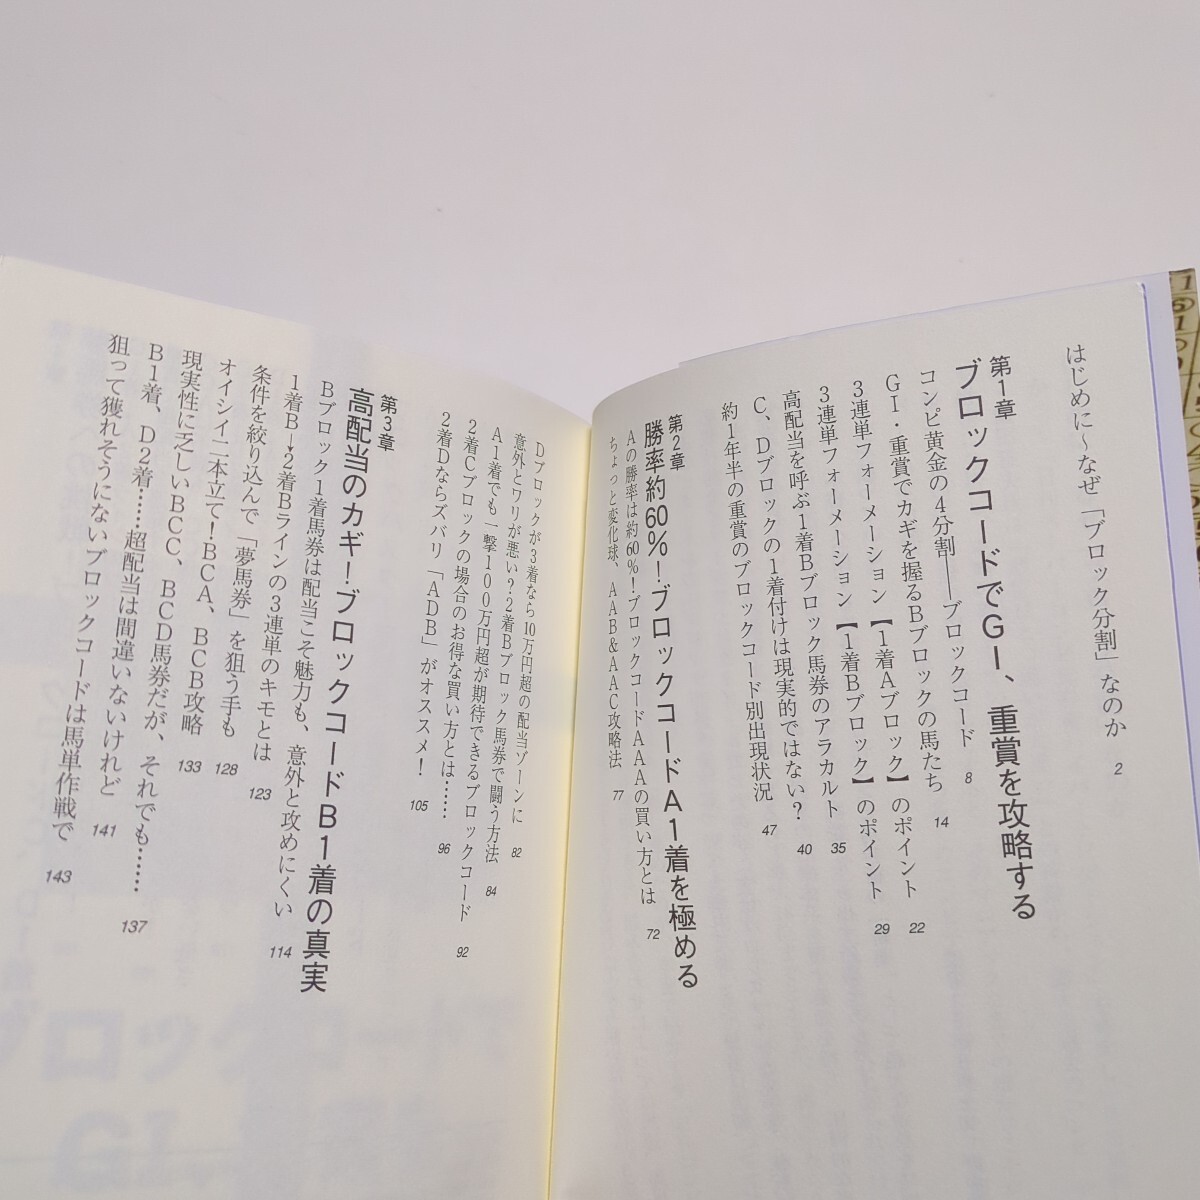 はじめに～なぜ「ブロック分割」なのか 2
第1章
ブロックコードでGⅠ、重賞を攻略する
コンピ黄金の4分割――ブロックコード 8
GⅠ・重賞でカギを握るBブロックの馬たち 14
3連単フォーメーション【1着Aブロック】のポイント 22
3連単フォーメーション【1着Bブロック】のポイント 29
高配当を呼ぶ1着Bブロック馬券のアラカルト 35
C、Dブロックの1着付けは現実的ではない？ 40
約1年半の重賞のブロックコード別出現状況 47
第2章
勝率約60％！ブロックコードA1着を極める
Aの勝率は約60％！ブロックコードAAAの買い方とは 72
ちょっと変化球、AAB＆AAC攻略法 77
Dブロックが3着なら10万円超の配当ゾーンに 82
意外とワリが悪い？2着Bブロック馬券で闘う方法 84
A1着でも一撃100万円超が期待できるブロックコード 92
2着Cブロックの場合のお得な買い方とは…… 96
2着Dならズバリ「ADB」がオススメ！ 105
第3章
高配当のカギ！ブロックコードB1着の真実
Bブロック1着馬券は配当こそ魅力も、意外と攻めにくい 114
1着B→2着Bラインの3連単のキモとは 123
条件を絞り込んで「夢馬券」を狙う手も 128
オイシイ二本立て！BCA、BCB攻略 133
現実性に乏しいBCC、BCD馬券だが、それでも…… 137
B1着、D2着……超配当は間違いないけれど 141
狙って獲れそうにないブロックコードは馬単作戦で 143